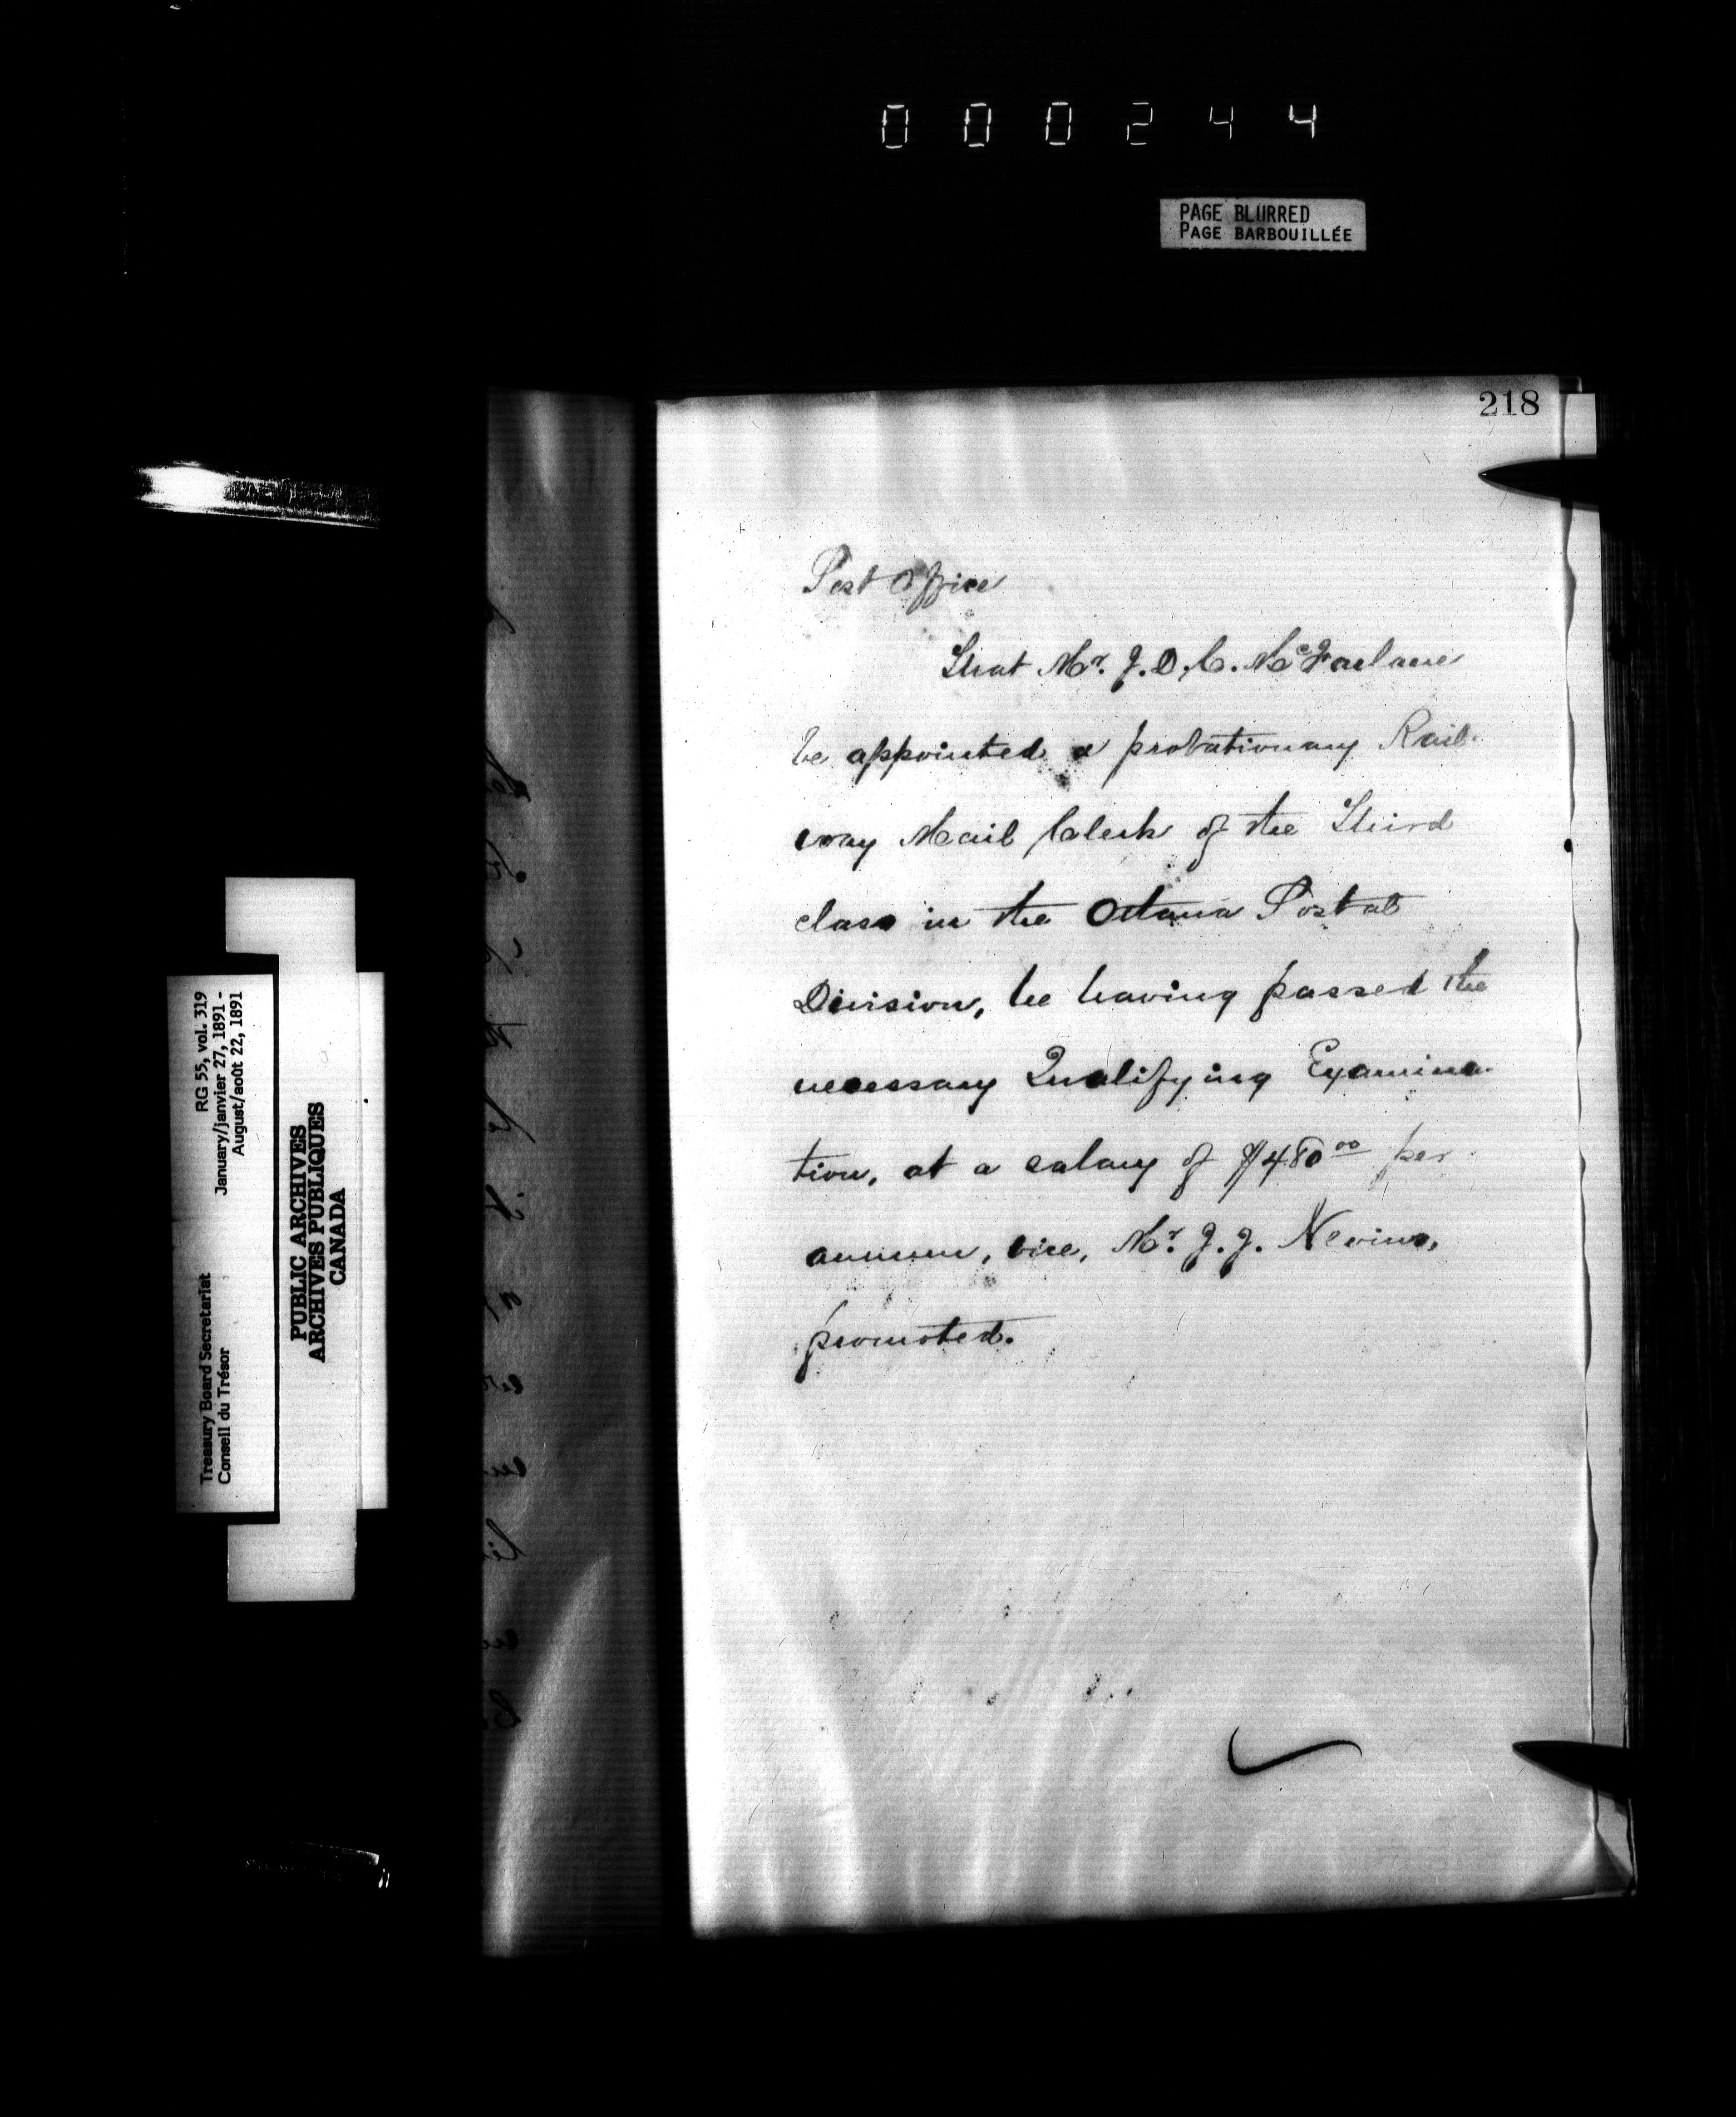 000244
PAGE BLURRED
PAGE BARBOUILLÉE
218
Post Office
That Mr. J. D. C. McFarlane
be appointed a probationary Rail-
way Mail Clerk of the Third
class in the Ottawa Postal
Division, he having passed the
necessary Qualifying Examina-
tion, at a salary of $480 00 per
annum, vice, Mr. J. J. Nevins,
promoted.
Treasury Board Secretariat RG 55, vol. 319
Conseil du Trésor January/janvier 27, 1891 -
August/août 22, 1891
PUBLIC ARCHIVES
ARCHIVES PUBLIQUES
CANADA